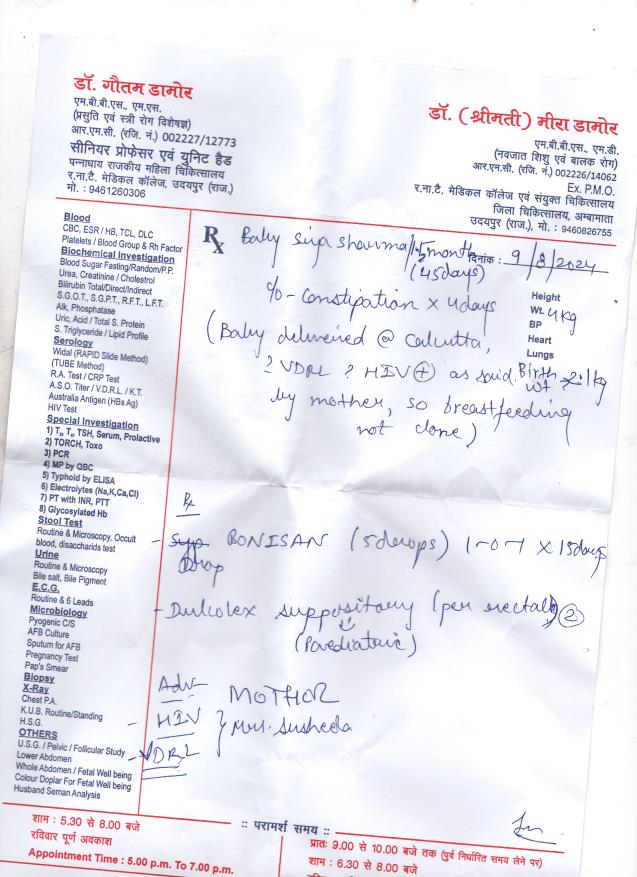 डॉ. गौतम डामोर
एम.बी.बी.एस., एम.एस.
(प्रसुति एवं स्त्री रोग विशेषज्ञ)
आर.एम.सी. (रजि. नं.) 002227/12773
सीनियर प्रोफेसर एवं यूनिट हैड
पन्नाधाय राजकीय महिला चिकित्सालय
र.ना.टै. मेडिकल कॉलेज, उदयपुर (राज.)
मो. : 9461260306
डॉ. (श्रीमती) मीरा डामोर
एम.बी.बी.एस., एम.डी.
(नवजात शिशु एवं बालक रोग)
आर.एम.सी. (रजि. नं.) 002226/14062
Ex. P.M.O.
र.ना.टै. मेडिकल कॉलेज एवं संयुक्त चिकित्सालय
जिला चिकित्सालय, अम्बामाता
उदयपुर (राज.), मो. : 9460826755
Blood
CBC, ESR / HB, TCL, DLC
Platelets / Blood Group & Rh Factor
Biochemical Investigation
Blood Sugar Fasting/Random/P.P.
Urea, Creatinine / Cholestrol
Bilirubin Total/Direct/Indirect
S.G.O.T., S.G.P.T., R.F.T., L.F.T.
Alk, Phosphatase
Uric, Acid / Total S. Protein
S. Triglyceride / Lipid Profile
Serology
Widal (RAPID Slide Method)
(TUBE Method)
R.A. Test / CRP Test
A.S.O. Titer / V.D.R.L. / K.T.
Australia Antigen (HBs Ag)
HIV Test
Special Investigation
1) T₃, T₄, TSH, Serum, Prolactive
2) TORCH, Toxo
3) PCR
4) MP by QBC
5) Typhoid by ELISA
6) Electrolytes (Na,K,Ca,Cl)
7) PT with INR, PTT
8) Glycosylated Hb
Stool Test
Routine & Microscopy, Occult
blood, disaccharids test
Urine
Routine & Microscopy
Bile salt, Bile Pigment
E.C.G.
Routine & 6 Leads
Microbiology
Pyogenic C/S
AFB Culture
Sputum for AFB
Pregnancy Test
Pap's Smear
Biopsy
X-Ray
Chest P.A.
K.U.B. Routine/Standing
H.S.G.
OTHERS
U.S.G. / Pelvic / Follicular Study
Lower Abdomen
Whole Abdomen / Fetal Well being
Colour Doplar For Fetal Well being
Husband Seman Analysis
Rx Baby Siya Sharma/1½ month दिनांक : 9/8/2024
(45days)
Height
Wt. 4 kg
BP
Heart
Lungs
c/o - Constipation x 4days
(Baby delivered @ Calcutta,
? VDRL ? HIV (+) as said Birth wt 2.1kg
by mother, so breastfeeding
not done)
Rx
- Syp BONISAN (5drops) 1-0-1 x 15days
Drop
- Dulcolex suppository (per rectal) (2)
(Paediatric)
Adv MOTHOR
- HIV } Mrs. Susheela
- VDRL
:: परामर्श समय ::
शाम : 5.30 से 8.00 बजे
रविवार पूर्ण अवकाश
Appointment Time : 5.00 p.m. To 7.00 p.m.
प्रातः 9.00 से 10.00 बजे तक (पूर्व निर्धारित समय लेने पर)
शाम : 6.30 से 8.00